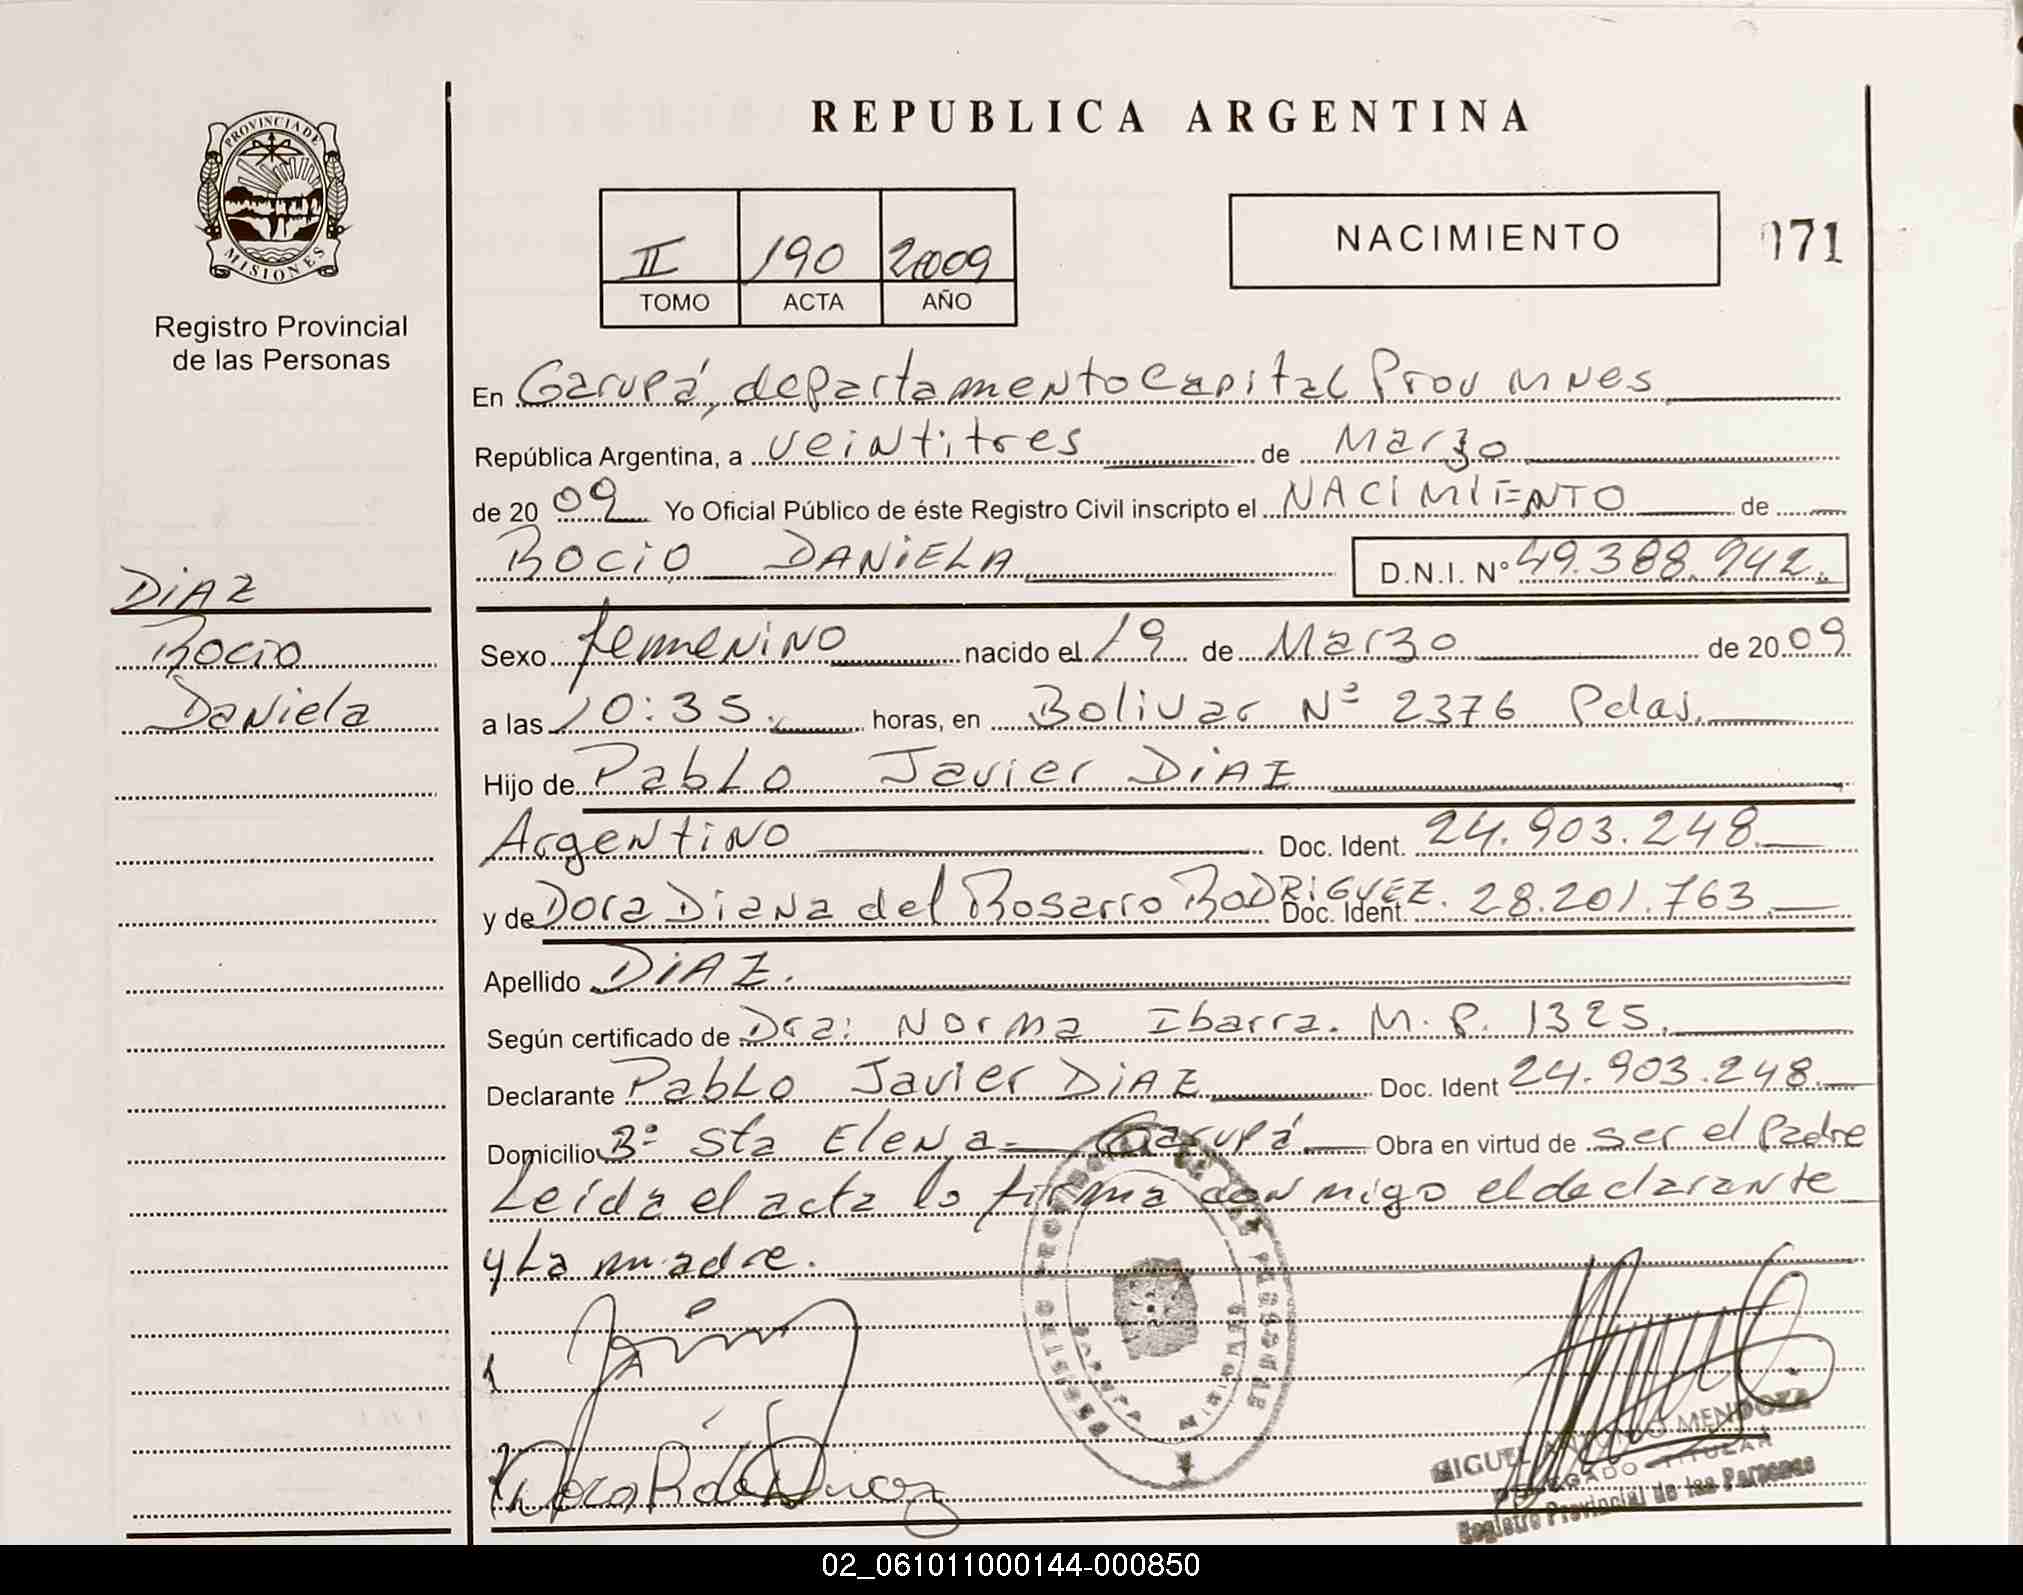 REPUBLICA ARGENTINA
PROVINCIA DE
MISIONES
Registro Provincial
de las Personas
II 190 2009
TOMO ACTA AÑO
NACIMIENTO
171
En Garupá, departamento Capital Prov Mnes
República Argentina, a veintitres de Marzo
de 2009 Yo Oficial Público de éste Registro Civil inscripto el NACIMIENTO de
ROCIO DANIELA D.N.I. Nº 49.388.942.
DIAZ
Rocio
Daniela
Sexo femenino nacido el 19 de Marzo de 2009
a las 10:35. horas, en Bolivar Nº 2376 Pdas.
Hijo de Pablo Javier DIAZ
Argentino Doc. Ident. 24.903.248.
y de Dora Diana del Rosario RODRIGUEZ. Doc. Ident. 28.201.763
Apellido DIAZ.
Según certificado de Dra: Norma Ibarra. M.P. 1325.
Declarante Pablo Javier DIAZ Doc. Ident 24.903.248.
Domicilio Bº Sta Elena - Garupá Obra en virtud de ser el Padre
Leída el acta la firma conmigo el declarante
y La madre.
MIGUEL ANTONIO MENDOZA
DELEGADO TITULAR
Registro Provincial de las Personas
02_061011000144-000850